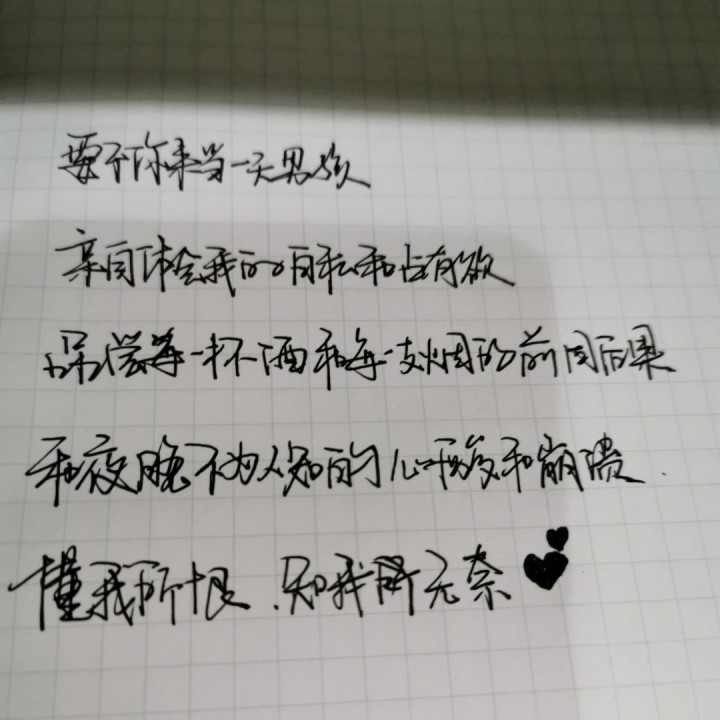 要不你来当一天男孩
亲自体会我的自私和占有欲
品尝每一杯酒和每一支烟的前因后果
和夜晚不为人知的心酸和崩溃.
懂我所恨.知我所无奈